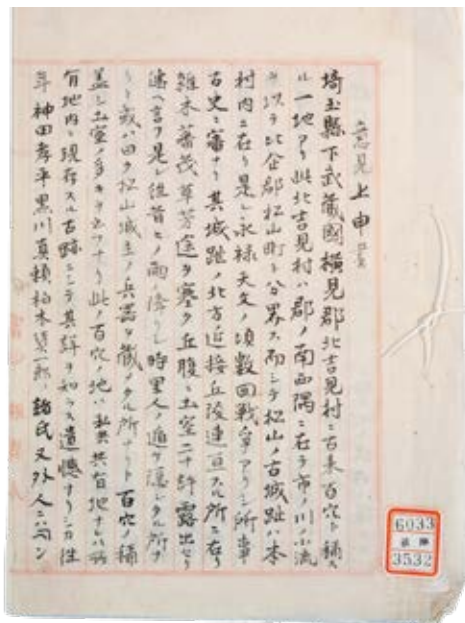 意見上申書
埼玉縣下武蔵國横見郡北吉見村ニ古来百穴ト稱ス
ル一地アリ此北吉見村ハ郡ノ南西隅ニ在テ市ノ川ノ小流
ヲ以テ比企郡松山町ト分界ス而シテ松山ノ古城趾ハ本
村内ニ在リ是レ永禄天文ノ頃数回戦争アリシ所事
古史ニ審ナリ其城趾ノ北方近接丘陵連亘スル所ニ在リ
雑木蓊茂草芳途ヲ塞ク丘腹ニ土室二十許露出セリ
傳ヘ言フ是レ往昔ヒノ雨ノ降リシ時里人ノ遁ケ隠レタル所ナ
リト或ハ曰ク松山城主ノ兵器ヲ蔵メタル所ナリト百穴ノ稱
蓋シ土室ノ多キヲ云フナリ此ノ百穴ノ地ハ私共共有地ナレハ所
有地内ニ現存スル古跡ニシテ其詳ヲ知ラス遺憾ナリシカ往
年神田孝平黒川真頼柏木貨一郎ノ諸氏又外人ニハヘン
6033
3532